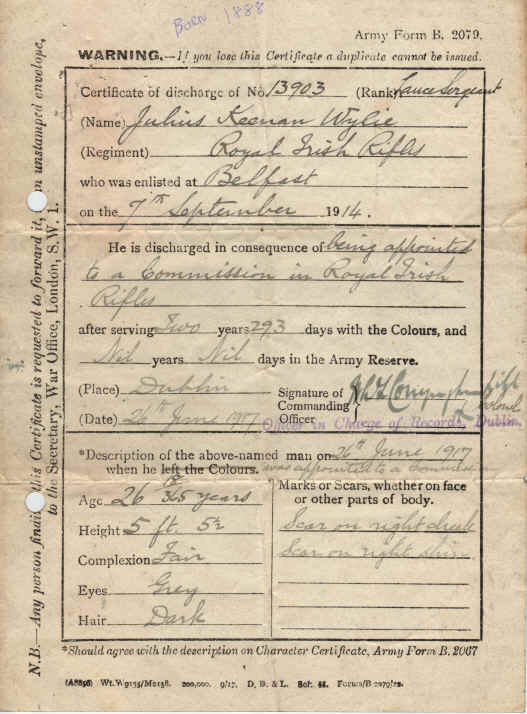 Born 1888
Army Form B. 2079.
WARNING.—If you lose this Certificate a duplicate cannot be issued.
Certificate of discharge of No. 13903 (Rank) Lance Sergeant
(Name) Julius Keenan Wylie
(Regiment) Royal Irish Rifles
who was enlisted at Belfast
on the 7th September 1914.
He is discharged in consequence of being appointed
to a Commission in Royal Irish
Rifles
after serving Two years 293 days with the Colours, and
Nil years Nil days in the Army Reserve.
(Place) Dublin
Signature of
Commanding
Officer
(Date) 26th June 1917
Officer in Charge of Records, Dublin.
*Description of the above-named man on 26th June 1917
when he left the Colours. was appointed to a Commission
Age 26 years
Height 5 ft.
Complexion Fair
Eyes Grey
Hair Dark
Marks or Scars, whether on face
or other parts of body.
Scar on right cheek
Scar on right shin
*Should agree with the description on Character Certificate, Army Form B. 2067
200,000. 9/17. D. D. & L. Sch. 44.
N.B.—Any person finding this Certificate is requested to forward it, in unstamped envelope,
to the Secretary, War Office, London, S.W. 1.